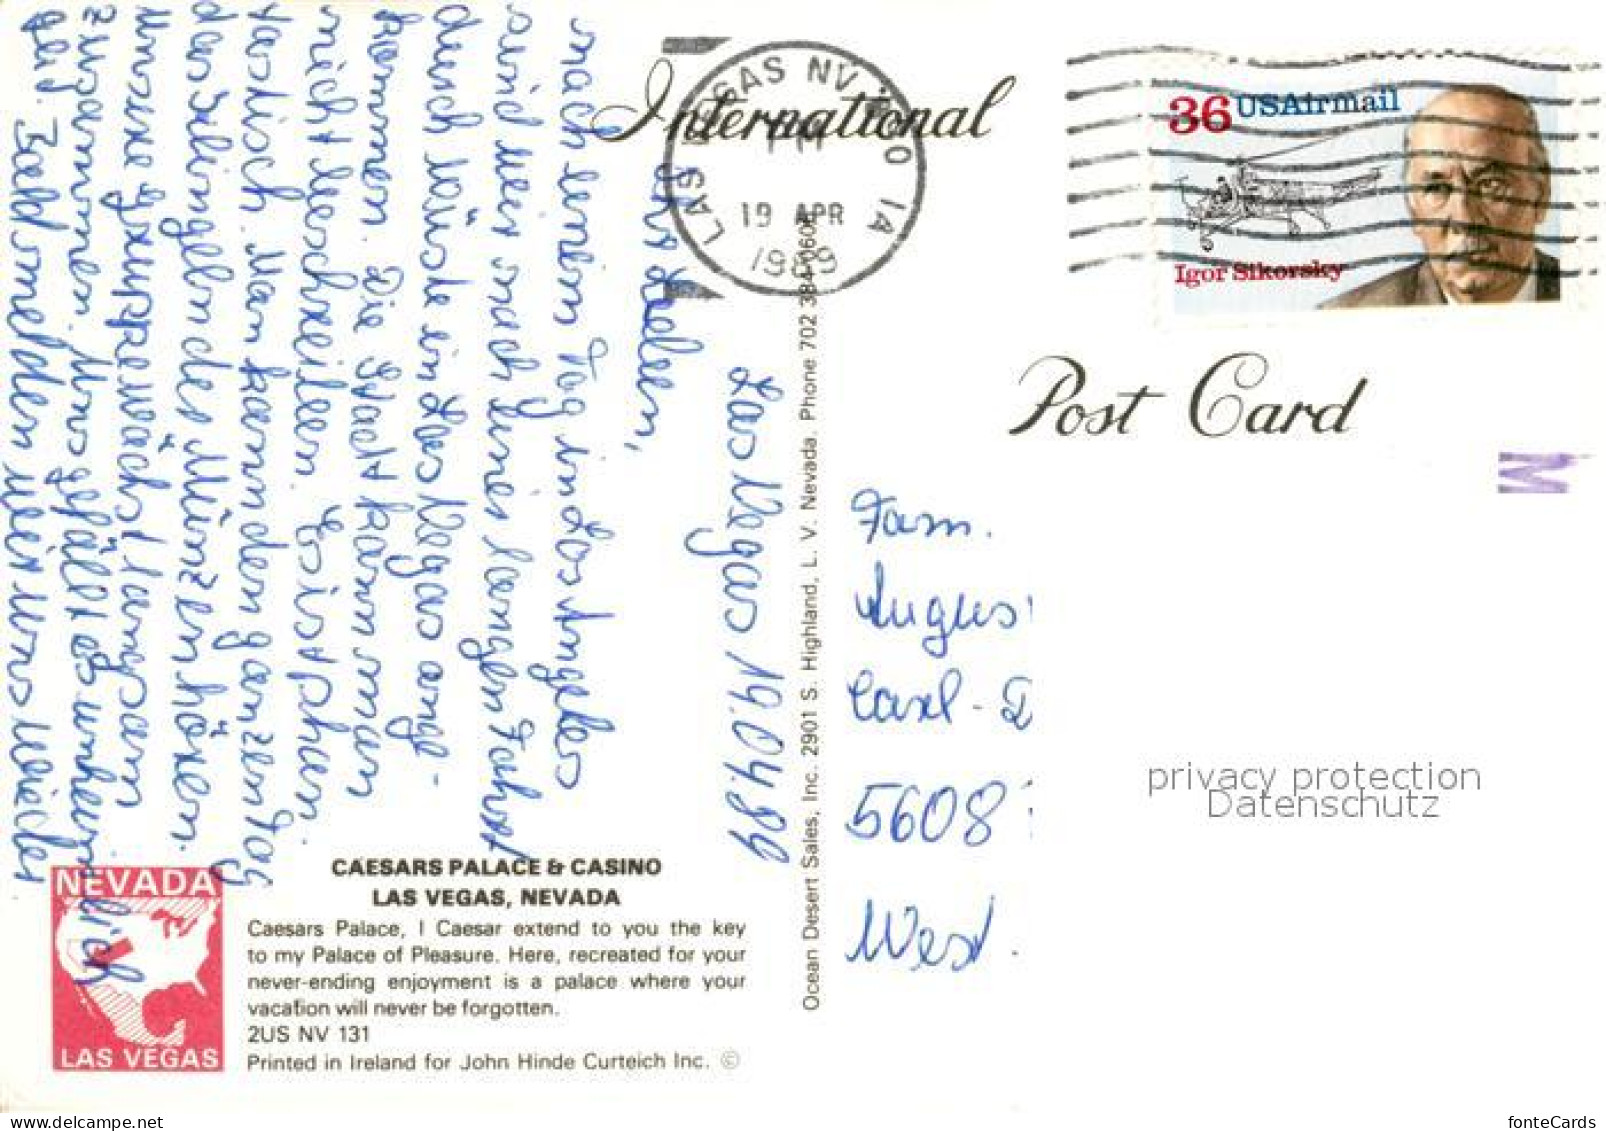 International
LAS VEGAS NV
PM
19 APR
1989
36 USAirmail
Igor Sikorsky
Post Card
M
Las Vegas 19.04.89
Ihr Lieben,
nach einem Tag in Los Angeles
sind wir nach einer langen Fahrt
durch Wüste in Las Vegas ange-
kommen. Die Stadt kann man
nicht beschreiben. Es ist phan-
tastisch. Man kann den ganzen Tag
das Klingeln der Münzen hören.
Unsere Gruppe wächst langsam
zusammen. Uns gefällt es unheimlich
gut. Bald melden wir uns wieder
Fam.
Augus
Carl-D
5608
West.
Ocean Desert Sales, Inc. 2901 S. Highland, L. V. Nevada. Phone 702 384-0605
privacy protection
Datenschutz
NEVADA
LAS VEGAS
CAESARS PALACE & CASINO
LAS VEGAS, NEVADA
Caesars Palace, I Caesar extend to you the key
to my Palace of Pleasure. Here, recreated for your
never-ending enjoyment is a palace where your
vacation will never be forgotten.
2US NV 131
Printed in Ireland for John Hinde Curteich Inc. ©
www.delcampe.net
fonteCards